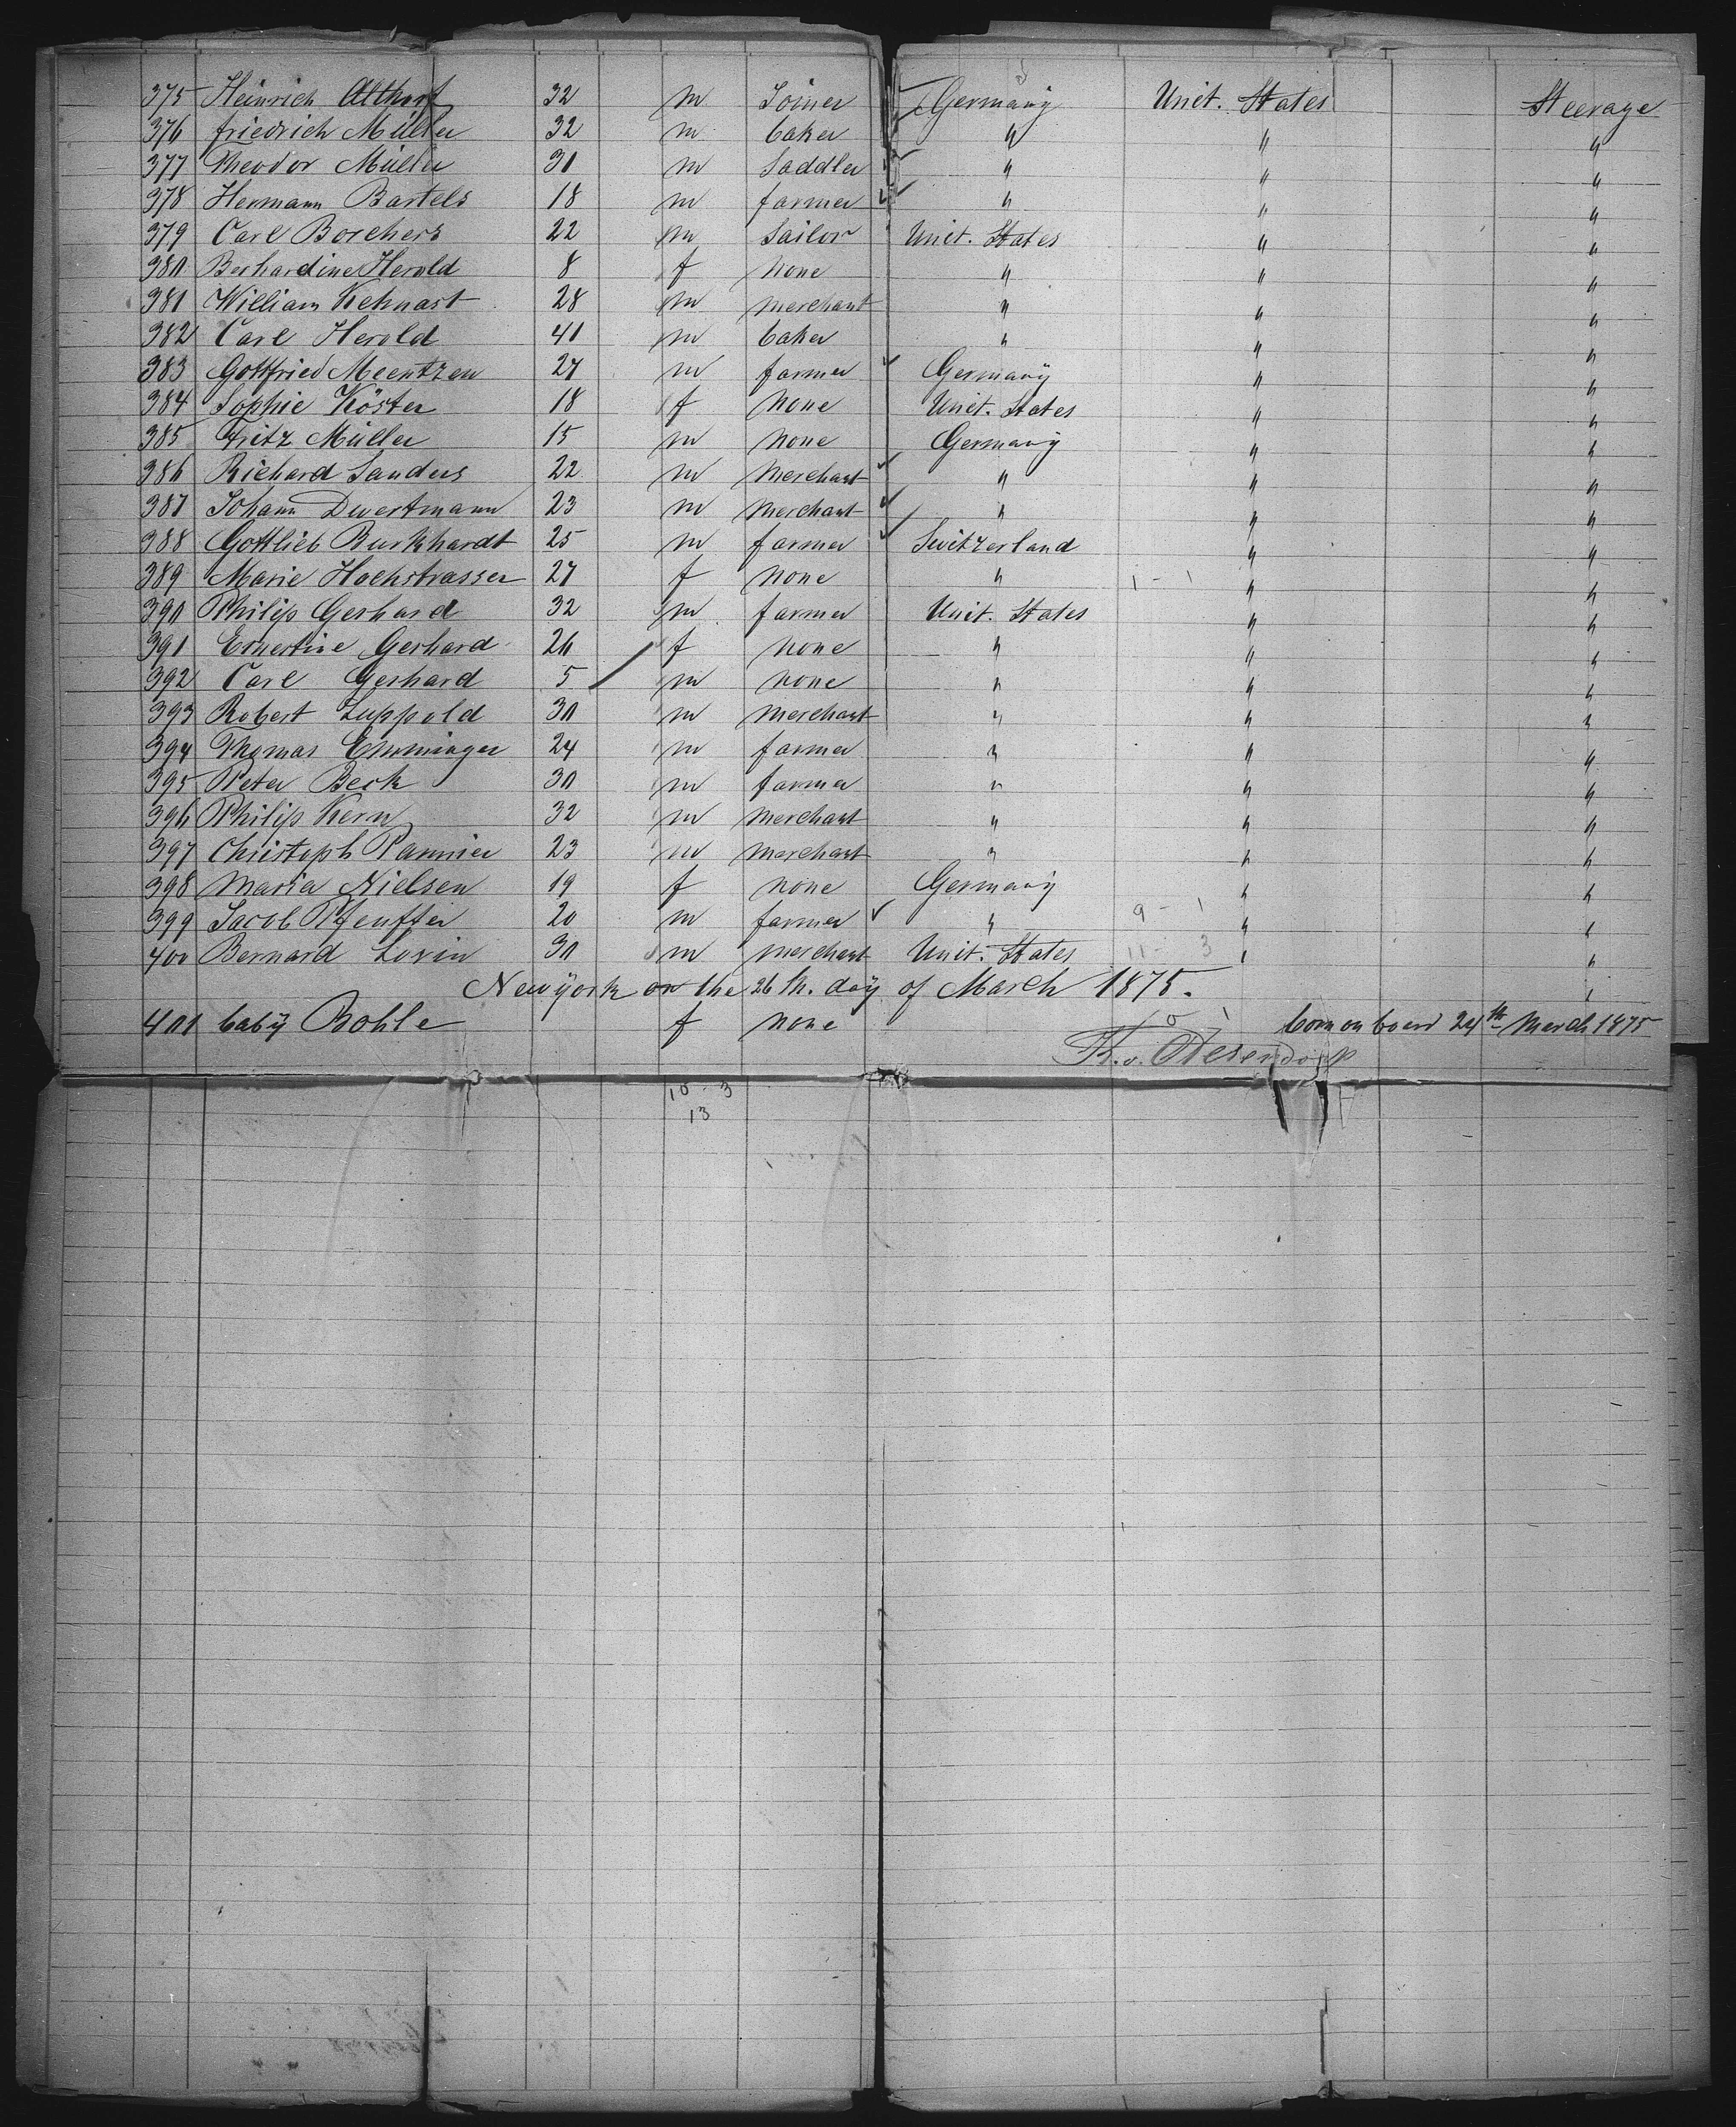 375 Heinrich Althorf 32 m Joiner Germany Unit. States Steerage
376 friedrich Müller 32 m baker " " "
377 Theodor Müller 30 m Saddler " " "
378 Hermann Bartels 18 m farmer " " "
379 Carl Borchers 22 m Sailor Unit. States " "
380 Berhardine Herold 8 f none " " "
381 William Kehnast 28 m merchant " " "
382 Carl Herold 40 m baker " " "
383 Gottfried Meentzen 27 m farmer Germany " "
384 Sophie Köster 18 f none Unit. States " "
385 Fritz Müller 15 m none Germany " "
386 Richard Sanders 22 m merchant " " "
387 Johann Dwertmann 23 m merchant " " "
388 Gottlieb Burkhardt 25 m farmer Switzerland " "
389 Marie Hochstrasser 27 f none " 1 - 1 " "
390 Philip Gerhard 32 m farmer Unit. States " "
391 Ernestine Gerhard 26 f none " " "
392 Carl Gerhard 5 m none " " "
393 Robert Luppold 30 m merchant " " "
394 Thomas Emminger 24 m farmer " " "
395 Peter Beck 30 m farmer " " "
396 Philip Kern 32 m merchant " " "
397 Christoph Pannier 23 m merchant " " "
398 Maria Nielsen 19 f none Germany " "
399 Jacob Pfeuffer 20 m farmer " 9 - 1 " "
400 Bernard 30 m merchant Unit. States 11 - 3 " "
Newyork on the 26 th. day of March 1875. "
401 baby Bohle f none born on board 24th March 1875
10 - 3
13